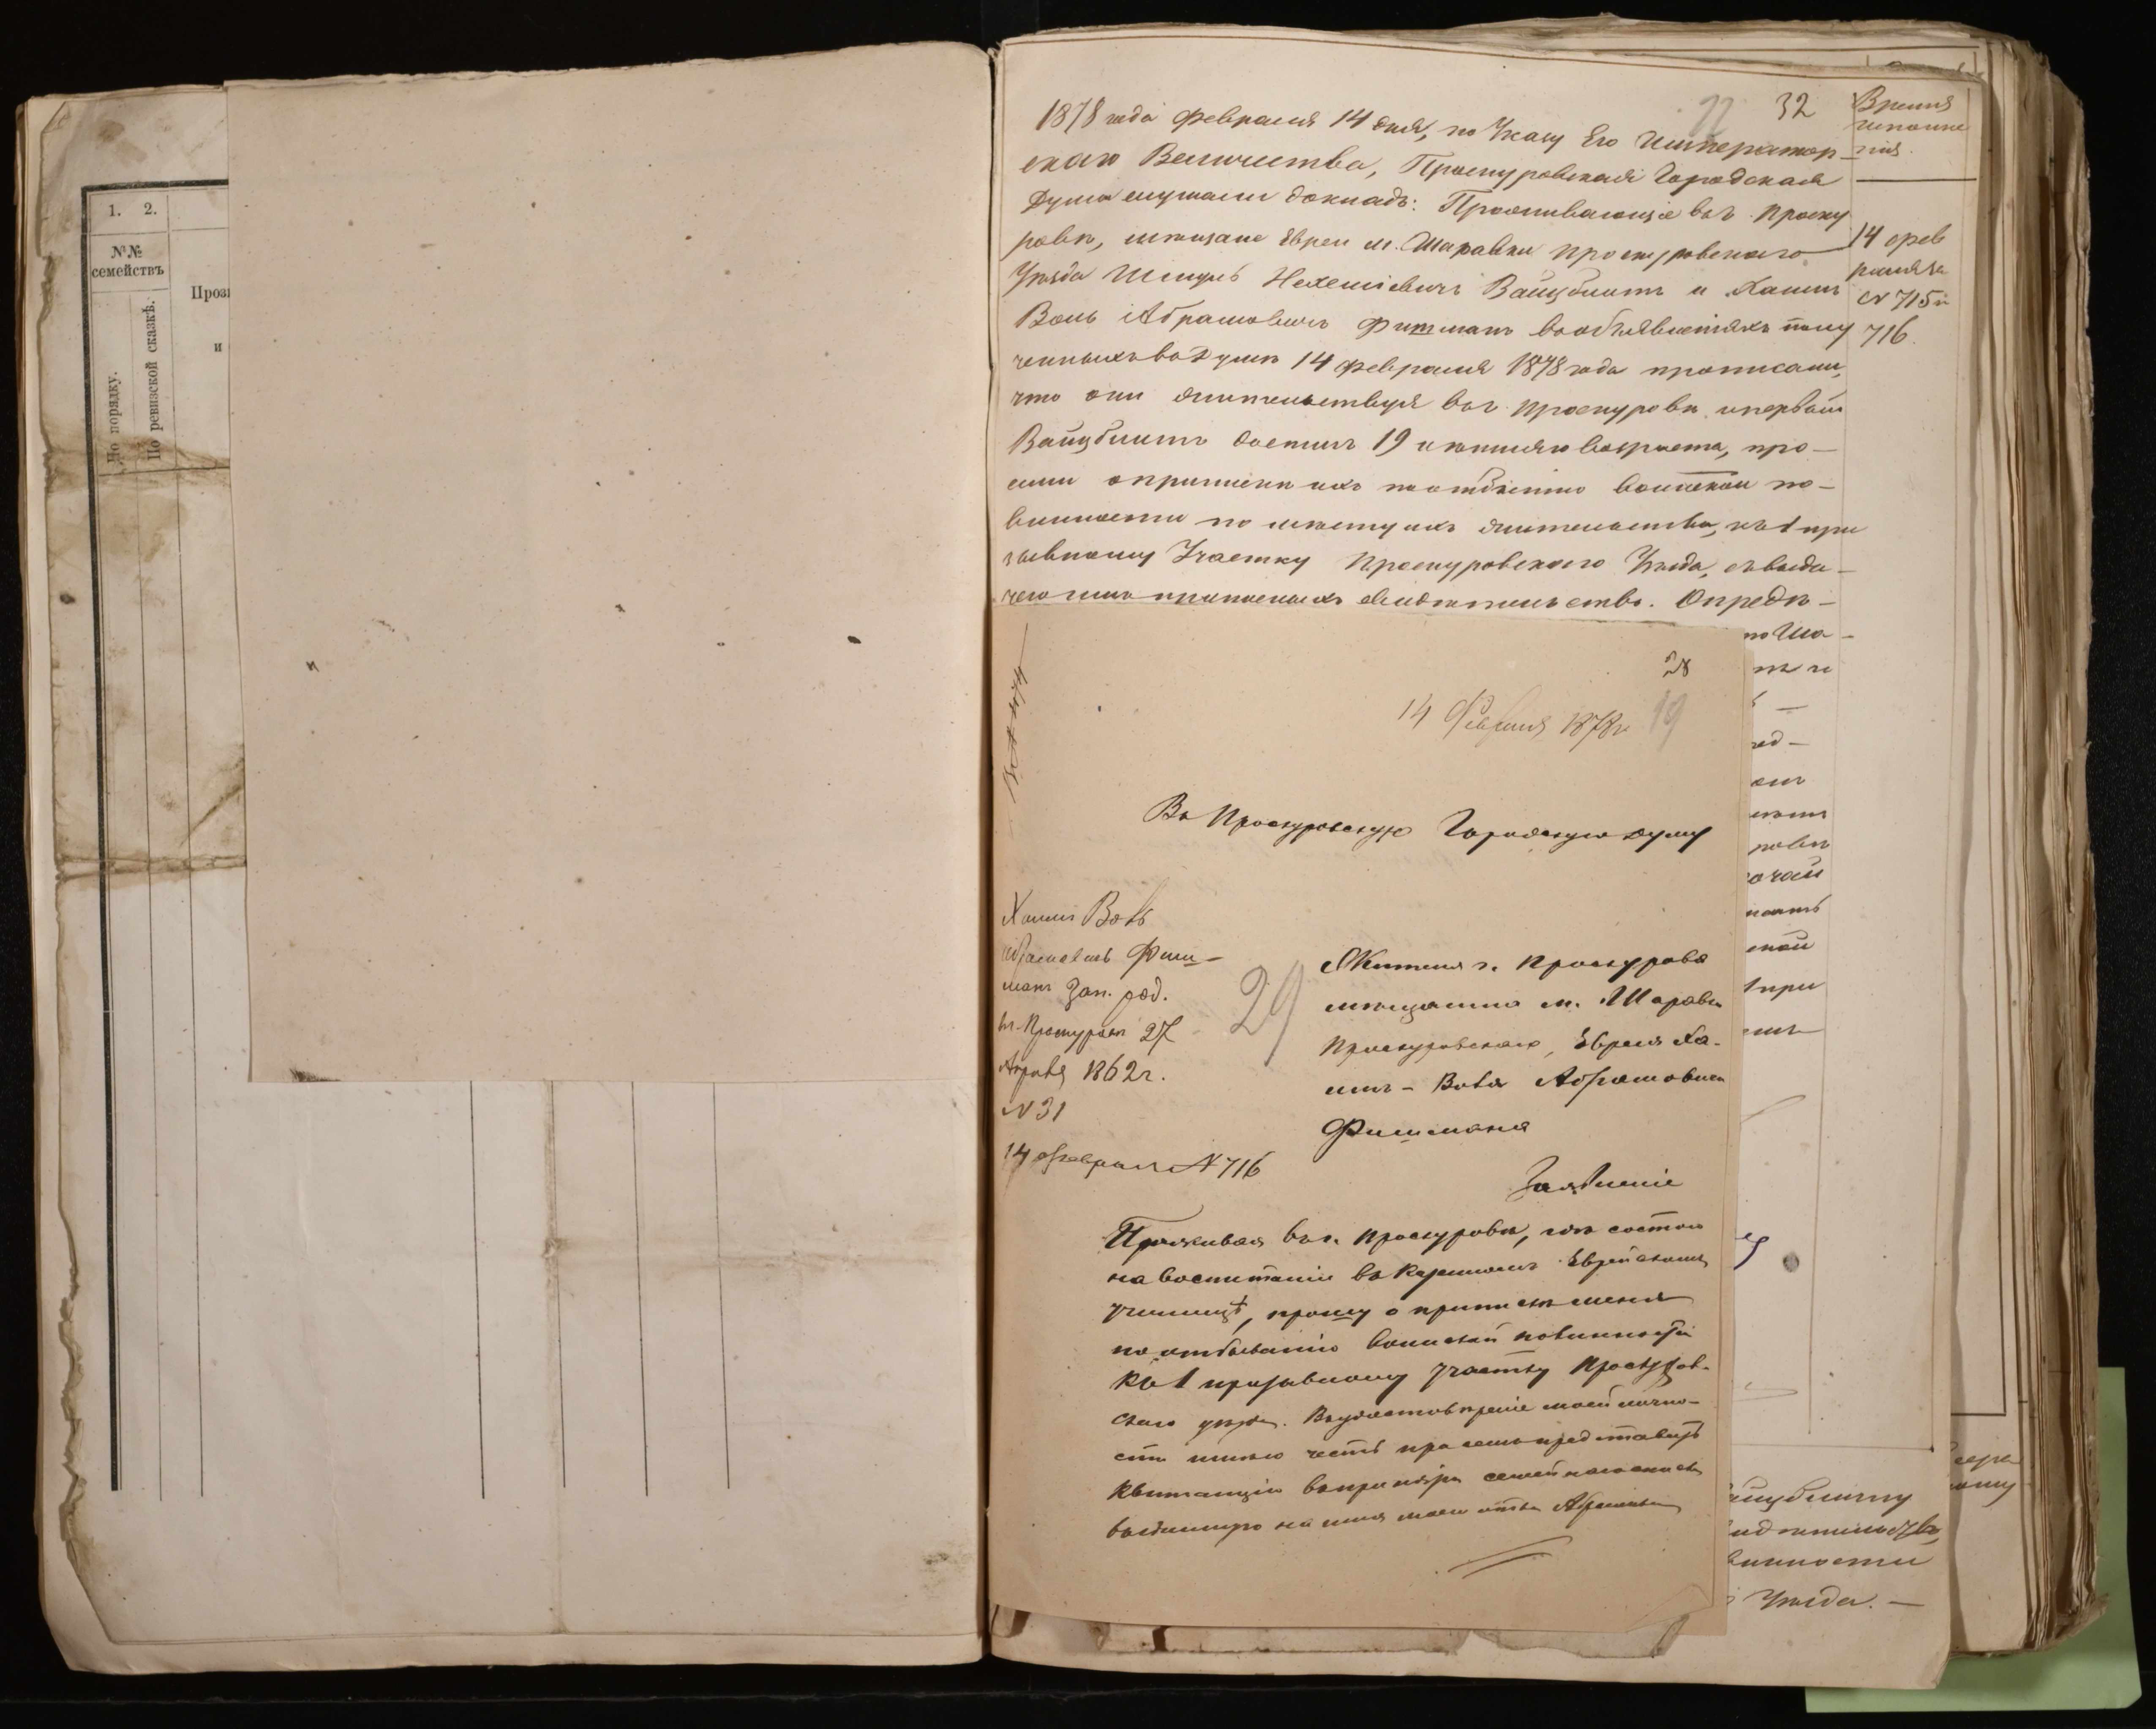 1. 2.
№№
семействъ
Проз
и
По порядку.
По ревизской сказкѣ.
32
Время
исполне
нія.
1878 года февраля 14 дня, по Указу Его Император
скаго Величества, Проскуровская Городская
Дума слушали докладъ: Проживающіе въ г. Проску
ровѣ, мѣщане Евреи м. Шаравки Проскуровскаго
Уѣзда Шмуль Нехемiевичъ Вайцблитъ и Хаимъ
Воль Абрамовичъ Фишманъ въ объявленіяхъ полу
ченныхъ въ Думѣ 14 февраля 1878 года прописали,
что они жительствуя въ г. Проскуровѣ и первый
Вайцблитъ достигъ 19 лѣтняго возраста, про–
сили о припискѣ ихъ по отбытію воинской по–
винности по мѣсту ихъ жительства, къ 1 при
зывному Участку Проскуровскаго Уѣзда, съ выда–
чею имъ приписныхъ свидѣтельствъ. Опредѣ–
14 фев
раля за
№ 715 и
716.
28
14 Февраля 1878 г. 19
Въ Проскуровскую Городскую Думу
Хаимъ Вовъ
Абрамовичъ Фиш–
манъ Зап. род.
въ г. Проскуровѣ 27
1862 г.
№ 31
14 февраля № 716
29
Жителя г. Проскурова
мѣщанина м. Шаравки
Проскуровскаго, Еврея Ха–
имъ – Вова Абрамовича
Фишмана
Заявленіе
Проживая въ г. Проскуровѣ, гдѣ состою
на воспитаніи въ Казенномъ Еврейскомъ
училищѣ, прошу о припискѣ меня
по отбыванію воинской повинности
къ 1 призывному участку Проскуров–
скаго уѣзда. Въ удостовѣреніе моей лично–
сти имѣю честь при семъ представить
квитанцію семейнаго списка
выданную на имя моего отца Абрама
по Ша–
ровѣ
ской
1 при
айцблиту
видѣтельствъ,
винности
Уѣзда. –